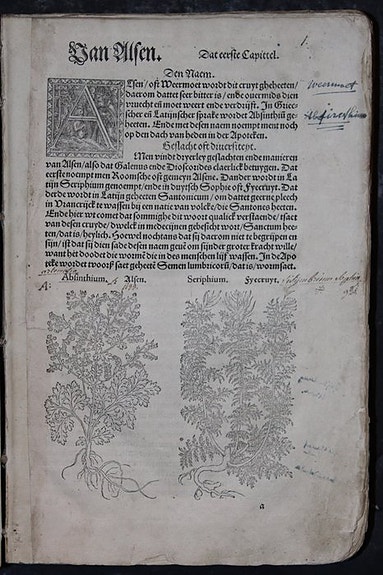 Van Alsen. Dat eerste Capittel. 1.
Den Naem.
Alsen/oft Weermoet wordt dit cruyt gheheeten/
daerom dattet seer bitter is/ende ouermids dien
vruecht en moet weert ende verdrijft. In Griec-
scher en Latijnscher sprake wordet Absinthiū ge-
heeten. Ende met desen naem noempt ment noch
op den dach van heden in der Apoteken.
Geslacht oft diuersiteyt.
Men vindt dryerley geslachten ende manieren
van Alsen/also dat Galenus ende Dioscorides claerlick betuygen. Dat
eerste noempt men Roomsche oft gemeyn Alsene. Dander wordt in La
tijn Seriphium genoempt/ende in duytsch Sophie oft Fyecruyt. Dat
derde wordt in Latijn geheeten Santonicum/om dattet geerne plech
in Vrancrijck te wassen by een natie van volcke/die Santones heeten.
Ende hier wt comet dat sommighe dit woort qualick verstaende/tsaet
van desen cruyde/dwelck in medecijnen gebesicht wort/Sanctum hee
ten/dat is/heylich. Hoewel nochtans dat sij daerom niet te begrijpen en
sijn/ist dat sij dien sade desen naem geuē om sijnder groter cracht wille/
want het doodet die wormē die in des menschen lijf wassen. In de Apo
teke wordet twoort saet geheetē Semen lumbricorū/dat is/wormsaet.
Absinthium. Alsen. Seriphium. Fyecruyt.
a